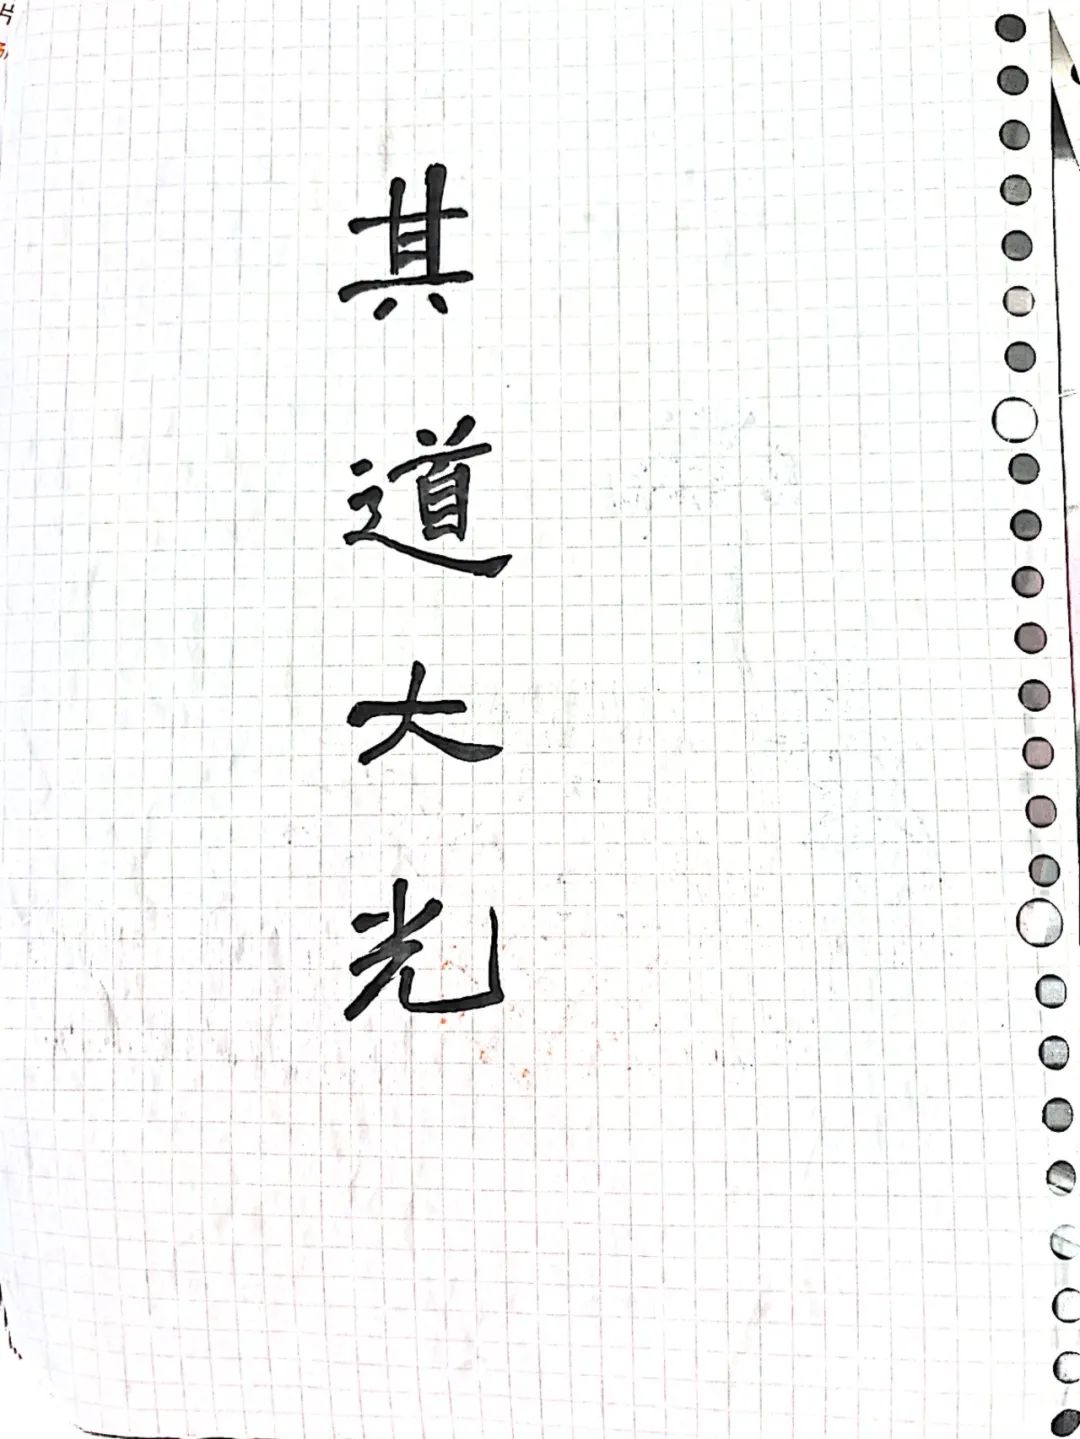 其道大光